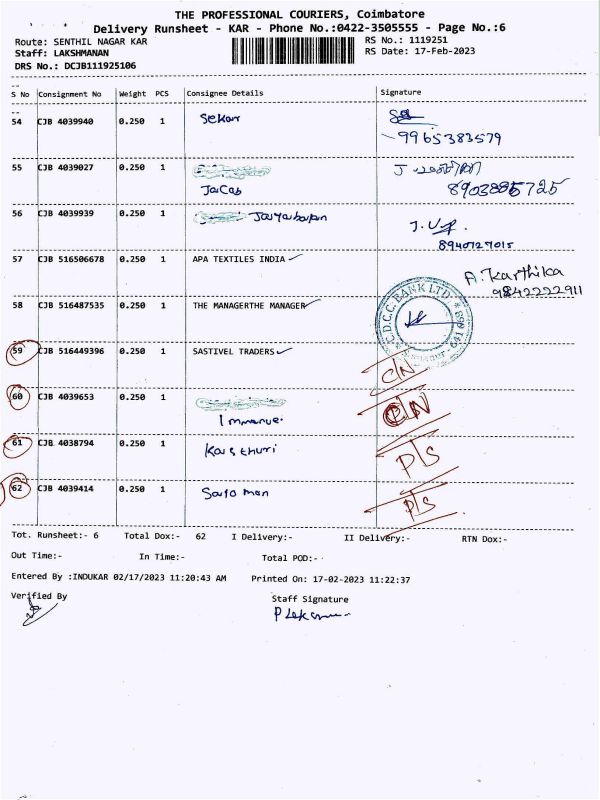 THE PROFESSIONAL COURIERS, Coimbatore
Delivery Runsheet - KAR - Phone No.:0422-3505555 - Page No.:6
Route: SENTHIL NAGAR KAR RS No.: 1119251
Staff: LAKSHMANAN RS Date: 17-Feb-2023
DRS No.: DCJB111925106
S No Consignment No Weight PCS Consignee Details Signature
54 CJB 4039940 0.250 1 Sekar
9965383579
55 CJB 4039027 0.250 1 J
Jacob 8903885725
56 CJB 4039939 0.250 1
8940727015
57 CJB 516506678 0.250 1 APA TEXTILES INDIA A. Karthika
9842222911
58 CJB 516487535 0.250 1 THE MANAGERTHE MANAGER C.D.C.C. BANK LTD.
59 CJB 516449396 0.250 1 SASTIVEL TRADERS C/N
60 CJB 4039653 0.250 1 P/N
61 CJB 4038794 0.250 1 P/S
62 CJB 4039414 0.250 1 P/S
Tot. Runsheet:- 6 Total Dox:- 62 I Delivery:- II Delivery:- RTN Dox:-
Out Time:- In Time:- Total POD:-
Entered By :INDUKAR 02/17/2023 11:20:43 AM Printed On: 17-02-2023 11:22:37
Verified By Staff Signature